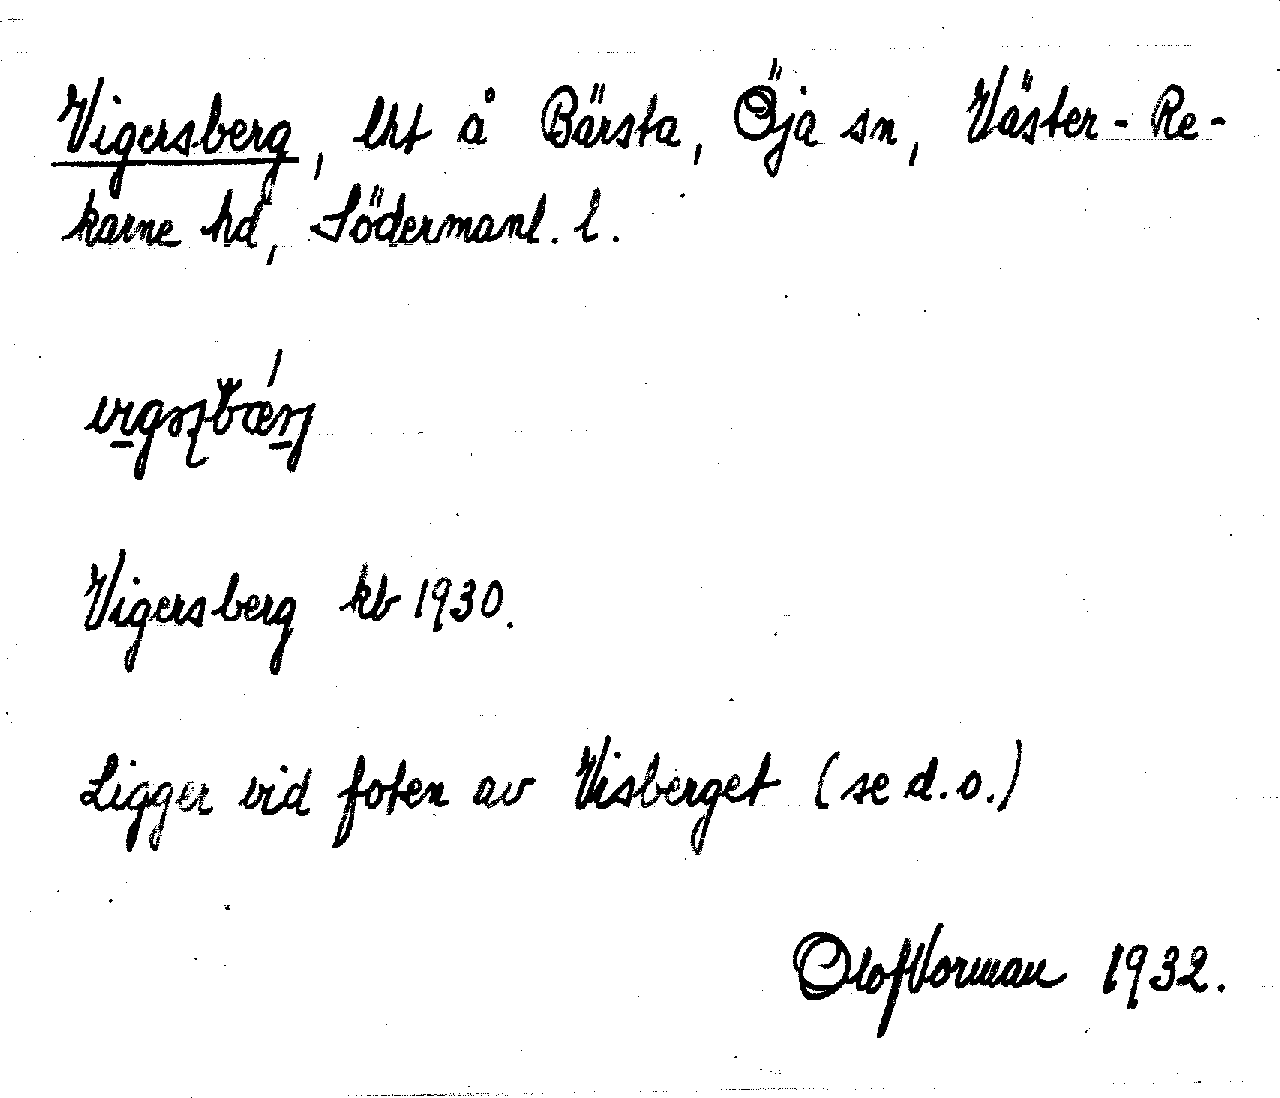 Vigersberg, lht å Bärsta, Öja sn, Väster-Re-
karne hd, Södermanl. l.
Vigersberg kb 1930.
Ligger vid foten av Visberget (se d.o.)
Olof Vorman 1932.